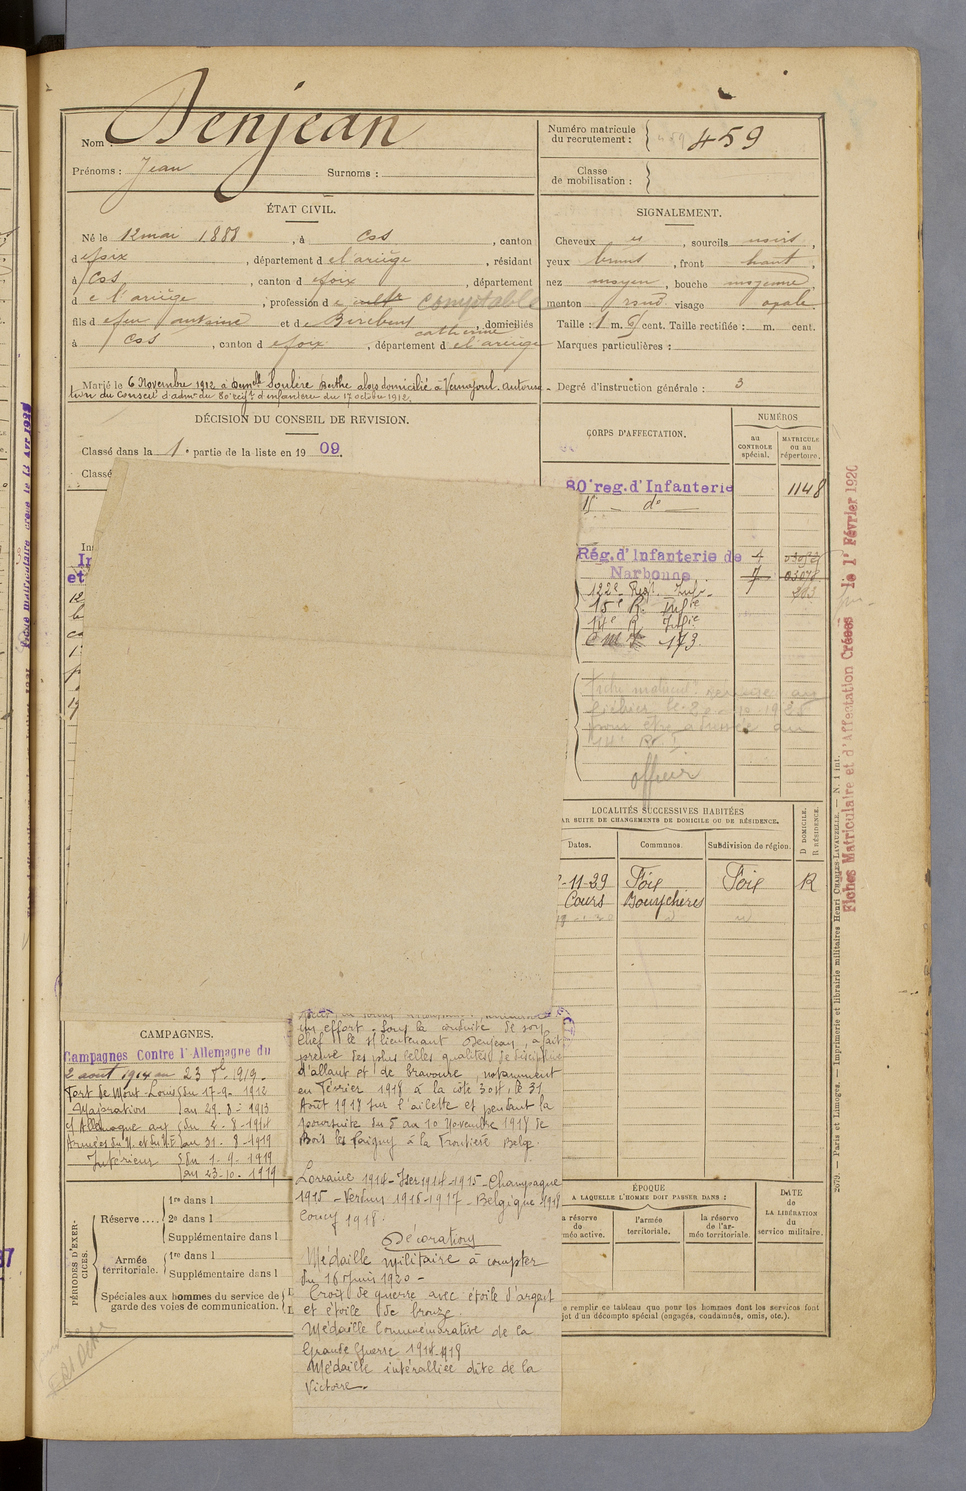 Nom : Denjean
Prénoms : Jean Surnoms :
ÉTAT CIVIL.
Né le 12 mai 1888, à Cos, canton
de foix, département de l'ariège, résidant
à Cos, canton de foix, département
de l'ariège, profession de cultr comptable
fils de feu antoine et de catherine, domiciliés
à Cos, canton de foix, département de l'ariège
Marié le 6 Novembre 1912 à Demlle Soulère Berthe alors domicilié à Vernajoul. Autorisa-
tion du Conseil d'admon du 80e régt d'infanterie du 17 octobre 1912.
DÉCISION DU CONSEIL DE REVISION.
Classé dans la 1e partie de la liste en 1909.
Classé
Numéro matricule
du recrutement : 459
Classe
de mobilisation :
SIGNALEMENT.
Cheveux et, sourcils noirs,
yeux bruns, front haut,
nez moyen, bouche moyenne,
menton rond visage opale
Taille : 1 m. 61 cent. Taille rectifiée : m. cent.
Marques particulières :
Degré d'instruction générale : 3
CORPS D'AFFECTATION.
NUMÉROS
au
CONTROLE
spécial.
MATRICULE
ou au
répertoire.
80e reg. d'Infanterie 1148
15 — do —
Rég. d'Infanterie de
Narbonne
122e Regt. Inf.
15e R. Infie
14e R. Infie
173.
Fiche matricule renvoyée au
fichier le 2 - 10 - 1925
pour être adressée au
14e R. I.
officier
LOCALITÉS SUCCESSIVES HABITÉES
AR SUITE DE CHANGEMENTS DE DOMICILE OU DE RÉSIDENCE.
Dates. Communes. Subdivision de région.
D DOMICILE.
R RÉSIDENCE.
-11-29 Foix Foix R
Cours Bouychères
CAMPAGNES.
Campagnes Contre l'Allemagne du
2 aout 1914 au 23 8bre 1919.
Fort de Mont-Louis du 17-9-1912
Majoration au 29-8-1913
c/ Allemagne aux du 2-8-1914
Armées du N. et du N.E. au 31-8-1919
Intérieur du 1-9-1919
au 23-10-1919
un effort. Sous la conduite de son
chef le s/lieutenant Denjean, a fait
preuve des plus belles qualités de discipline
d'allant et de bravoure, notamment
en Février 1918 à la côte 304, le 31
Août 1918 sur l'ailette et pendant la
poursuite du 5 au 10 Novembre 1918 de
Bois les Pargny à la Frontière Belge.
Lorraine 1914 - Yser 1914-1915 - Champagne
1915 - Verdun 1916-1917 - Belgique 1918
Coucy 1918.
Décorations
Médaille militaire à compter
du 16 Juin 1920 -
Croix de guerre avec étoile d'argent
et étoile de bronze.
Médaille Commémorative de la
Grande Guerre 1914-1918
Médaille interalliée dite de la
Victoire.
PÉRIODES D'EXER-
CICES.
Réserve....
1re dans l
2e dans l
Supplémentaire dans l
Armée
territoriale.
1re dans l
Supplémentaire dans l
Spéciales aux hommes du service de
garde des voies de communication.
ÉPOQUE
A LAQUELLE L'HOMME DOIT PASSER DANS :
la réserve
de
mée active.
l'armée
territoriale.
la réserve
de l'ar-
mée territoriale.
DATE
de
LA LIBÉRATION
du
service militaire.
e remplir ce tableau que pour les hommes dont les services font
jet d'un décompte spécial (engagés, condamnés, omis, etc.).
Fiches Matriculaire et d'Affectation Créées le 1r Février 1920
2679. — Paris et Limoges. — Imprimerie et librairie militaires Henri CHARLES-LAVAUZELLE. — N. 1 int.